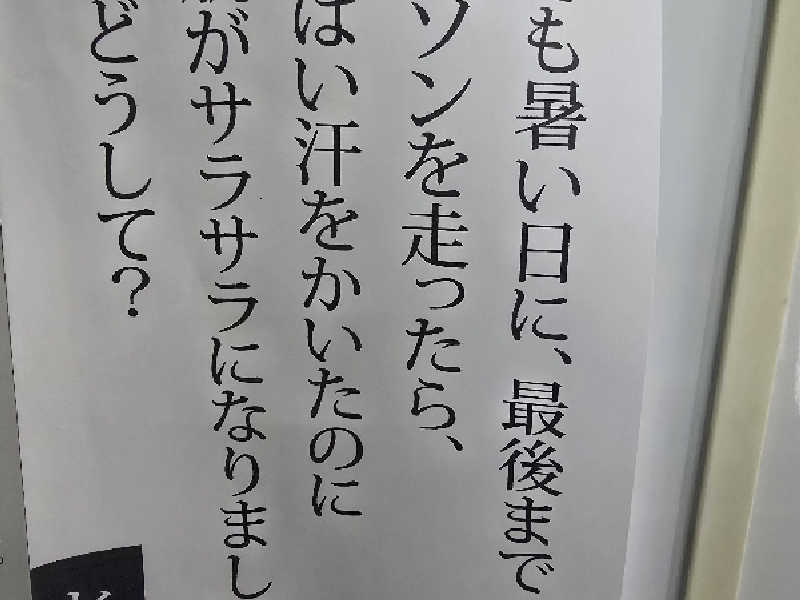 も暑い日に、最後まで
ソンを走ったら、
はい汗をかいたのに
がサラサラになりまし
どうして？